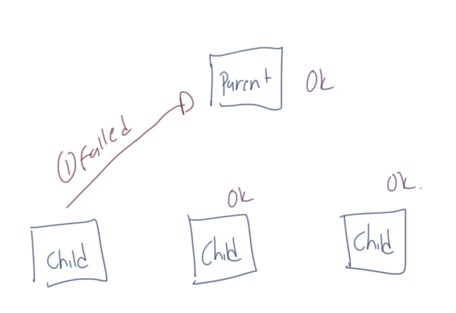 Parent
Ok
① Failed
Ok
Ok.
Child
Child
Child